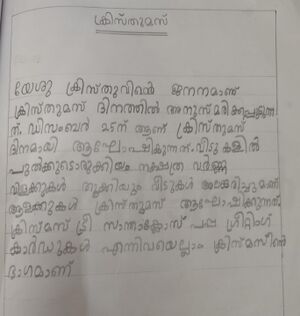 ക്രിസ്തുമസ്
യേശു ക്രിസ്തുവിൻെ ജനനമാണ്
ക്രിസ്തുമസ് ദിനത്തിൽ അനുസ്മരിക്കപ്പെടുന്ന
ത്. ഡിസംബർ 25ന് ആണ് ക്രിസ്തുമസ്
ദിനമായി ആഘോഷിക്കുന്നത്. വീടുകളിൽ
പുൽക്കൂടൊരുക്കിയും നക്ഷത്ര വർണ്ണ
വിളക്കുകൾ തൂക്കിയും വീടുകൾ അലങ്കരിച്ചുമാണ്
ആളുകൾ ക്രിസ്തുമസ് ആഘോഷിക്കുന്നത്.
ക്രിസ്മസ് ട്രീ സാന്താക്ലോസ് പപ്പ ഗ്രീറ്റിംഗ്
കാർഡുകൾ എന്നിവയെല്ലാം ക്രിസ്മസിൻെ
ഭാഗമാണ്